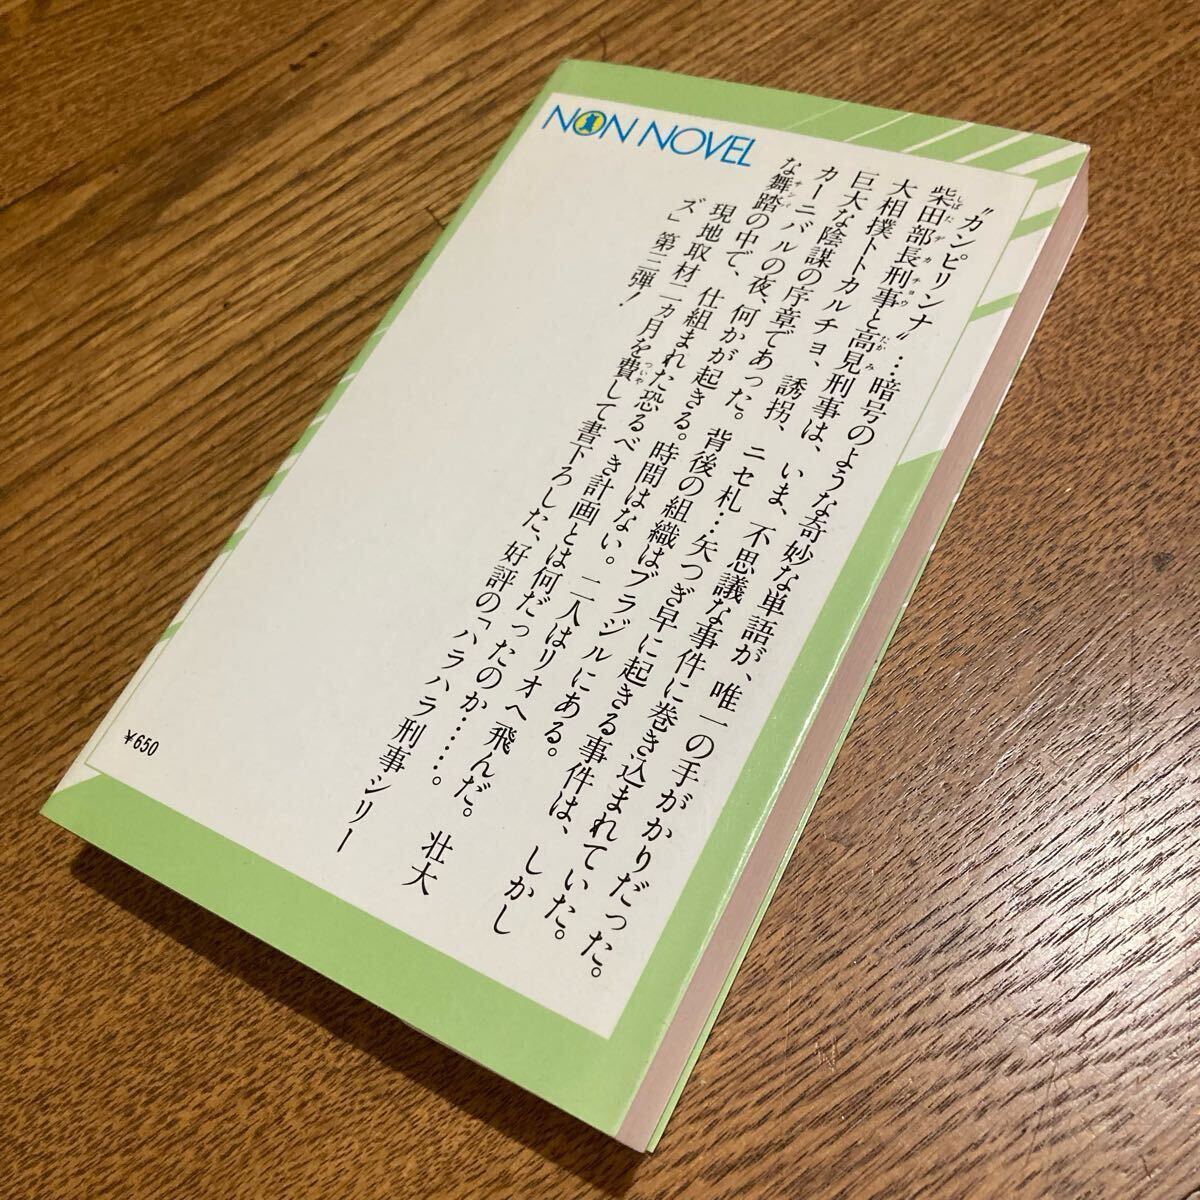 NON NOVEL
〝カンピリンナ〟…暗号のような奇妙な単語が、唯一の手がかりだった。
しばた デカチョウ たかみ
柴田部長刑事と高見刑事は、いま、不思議な事件に巻き込まれていた。
大相撲トトカルチョ、誘拐、ニセ札…矢つぎ早に起きる事件は、しかし
巨大な陰謀の序章であった。背後の組織はブラジルにある。
カーニバルの夜、何かが起きる。時間はない。二人はリオへ飛んだ。壮大
サンバ
な舞踏の中で、仕組まれた恐るべき計画とは何だったのか……。
ついや
現地取材二カ月を費して書下ろした、好評の「ハラハラ刑事シリー
ズ」第三弾!
¥650